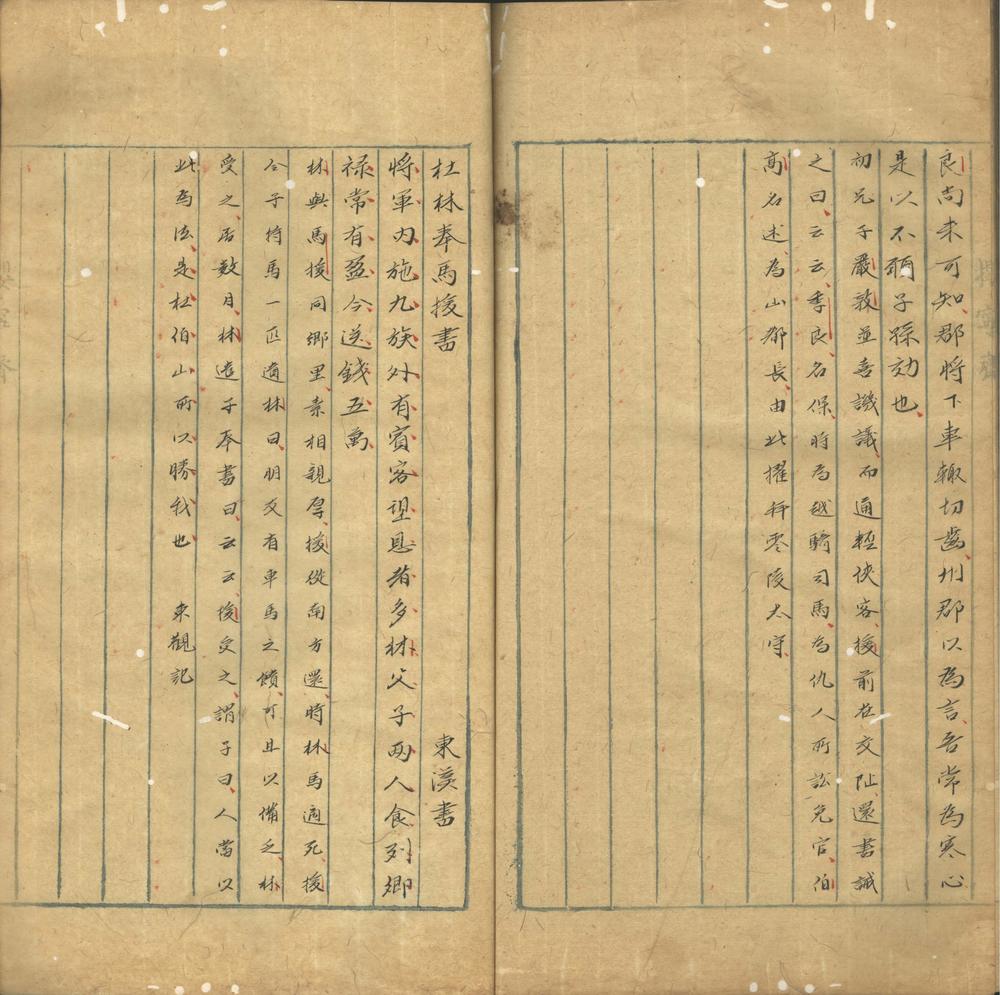 良尚未可知郡將下車輙切齒州郡以為言吾常為寒心
是以不願子孫効也
初兄子嚴敦並喜譏議而通輕俠客援前在交阯還書誡
之曰云云季良名保時為越騎司馬為仇人所訟免官伯
高名述為山都長由此擢拜零陵太守
杜林奉馬援書 東漢書
將軍內施九族外有賓客望恩者多林父子兩人食列卿
祿常有盈今送錢五萬
林與馬援同鄉里素相親厚援從南方還時林馬適死援
令子持馬一匹遺林曰朋友有車馬之饋可且以備乏林
受之居數月林遣子奉書曰云云援受之謂子曰人當以
此為法是杜伯山所以勝我也 東觀記